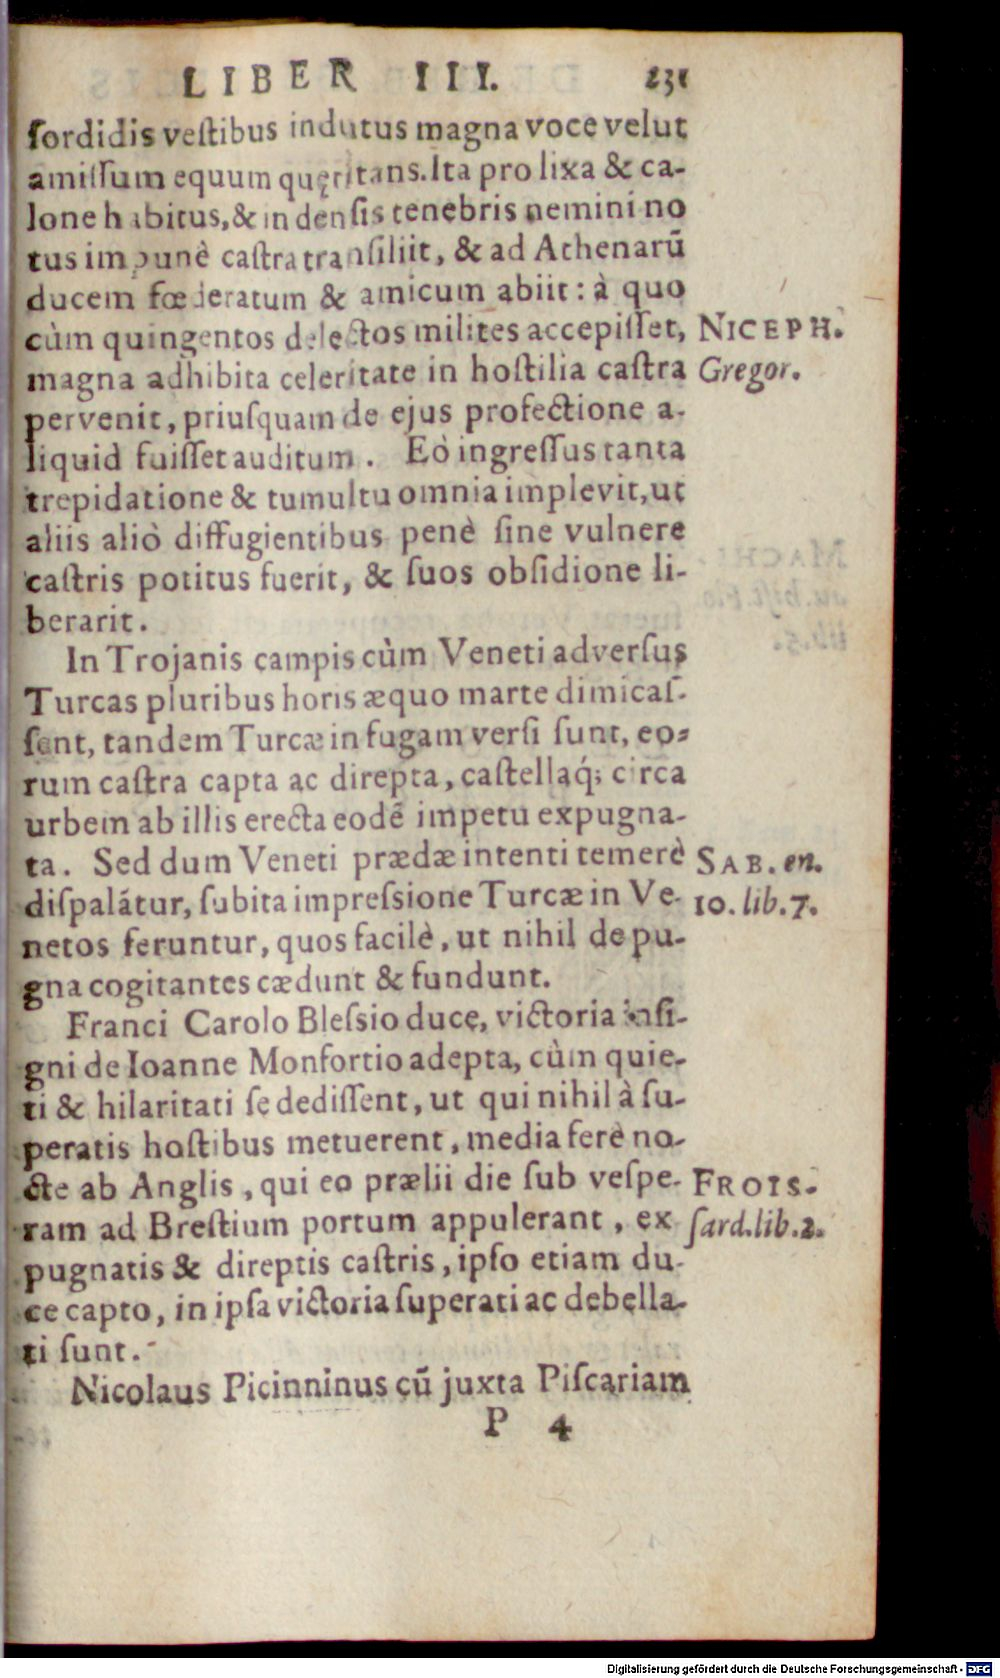 LIBER III. 231
ſordidis veſtibus indutus magna voce velut
amiſſum equum quęritans. Ita pro lixa & ca-
lone habitus, & in denſis tenebris nemini no
tus impunè caſtra tranſiliit, & ad Athenarū
ducem fœderatum & amicum abiit: à quo
cùm quingentos delectos milites accepiſſet,
NICEPH.
magna adhibita celeritate in hoſtilia caſtra
Gregor.
pervenit, priuſquam de ejus profectione a-
liquid fuiſſet auditum. Eò ingreſſus tanta
trepidatione & tumultu omnia implevit, ut
aliis aliò diffugientibus penè ſine vulnere
caſtris potitus fuerit, & ſuos obſidione li-
berarit.
In Trojanis campis cùm Veneti adverſus
Turcas pluribus horis æquo marte dimicaſ-
ſent, tandem Turcæ in fugam verſi ſunt, eo-
rum caſtra capta ac direpta, caſtellaq́; circa
urbem ab illis erecta eodē impetu expugna-
ta. Sed dum Veneti prædæ intenti temerè
SAB. en.
diſpalátur, ſubita impreſſione Turcæ in Ve-
10. lib. 7.
netos feruntur, quos facilè, ut nihil de pu-
gna cogitantes cædunt & fundunt.
Franci Carolo Bleſsio duce, victoria inſi-
gni de Ioanne Monfortio adepta, cùm quie-
ti & hilaritati ſe dediſſent, ut qui nihil à ſu-
peratis hoſtibus metuerent, media ferè no-
cte ab Anglis, qui eo prælii die ſub veſpe-
FROIS-
ram ad Breſtium portum appulerant, ex
ſard. lib. 2.
pugnatis & direptis caſtris, ipſo etiam du-
ce capto, in ipſa victoria ſuperati ac debella-
ti ſunt.
Nicolaus Picinninus cū juxta Piſcariam
P 4
Digitalisierung gefördert durch die Deutsche Forschungsgemeinschaft - DFG